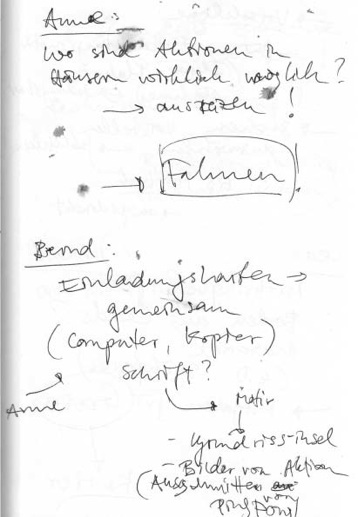 Anne:
Wo sind Aktionen in
Häusern wirklich möglich?
→ !
→ Fahnen
Bernd:
Einladungskarten →
gemeinsam
(Computer, Kopier)
Schrift?
Anne
Motiv
- Grundriss-insel
- Bilder von Aktion
(Ausschnitte von
Ping Pong